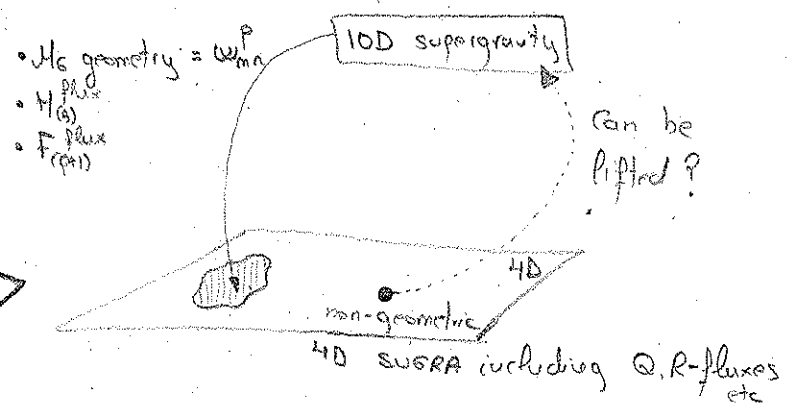 • M₆ geometry = ω_{mn}^{p}
• H_{(3)}^{flux}
• F_{(p+1)}^{flux}
10D supergravity
Can be
lifted ?
4D
non-geometric
4D SUGRA including Q, R-fluxes
etc